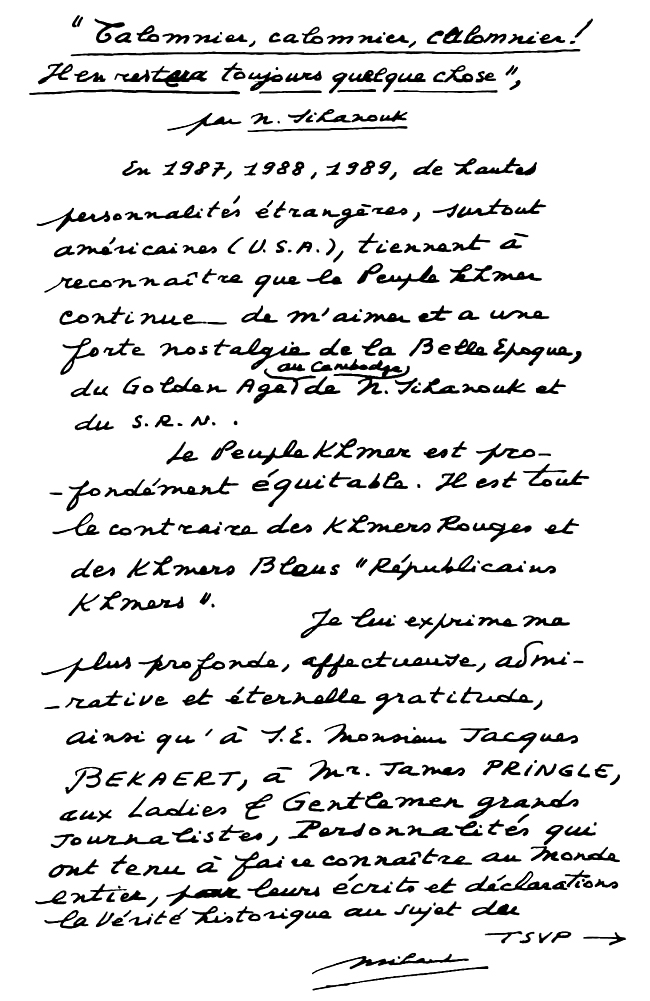 "Calomnier, calomnier, calomnier!
Il en restera toujours quelque chose",
par N. Sihanouk
En 1987, 1988, 1989, de hautes
personnalités étrangères, surtout
américaines (U.S.A.), tiennent à
reconnaître que le Peuple Khmer
continue de m'aimer et a une
forte nostalgie de la Belle Epoque,
au Cambodge
du Golden Age de N. Sihanouk et
du S.R.N..
Le Peuple Khmer est pro-
-fondément équitable. Il est tout
le contraire des Khmers Rouges et
des Khmers Bleus "Républicains
Khmers".
Je lui exprime ma
plus profonde, affectueuse, admi-
-rative et éternelle gratitude,
ainsi qu'à S.E. Monsieur Jacques
BEKAERT, à Mr. James PRINGLE,
aux Ladies & Gentlemen grands
Journalistes, Personnalités qui
ont tenu à faire connaître au Monde
entier, par leurs écrits et déclarations
la Vérité historique au sujet du
TSVP →